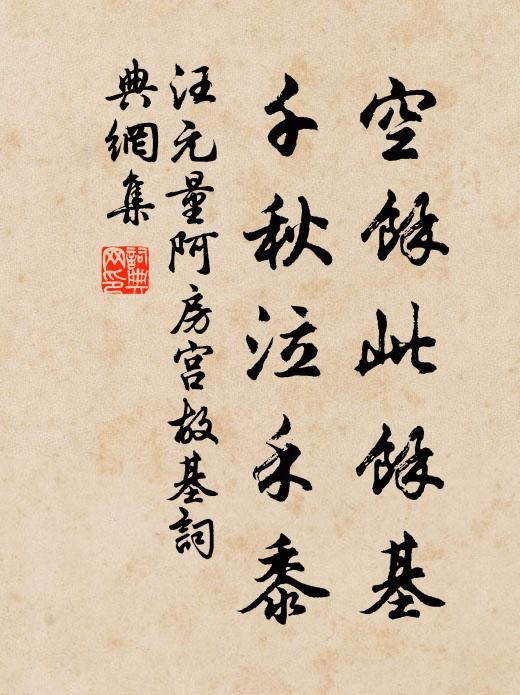 空餘此餘基
千秋泣禾黍
汪元量阿房宮故基詞
典網集
詞典網印